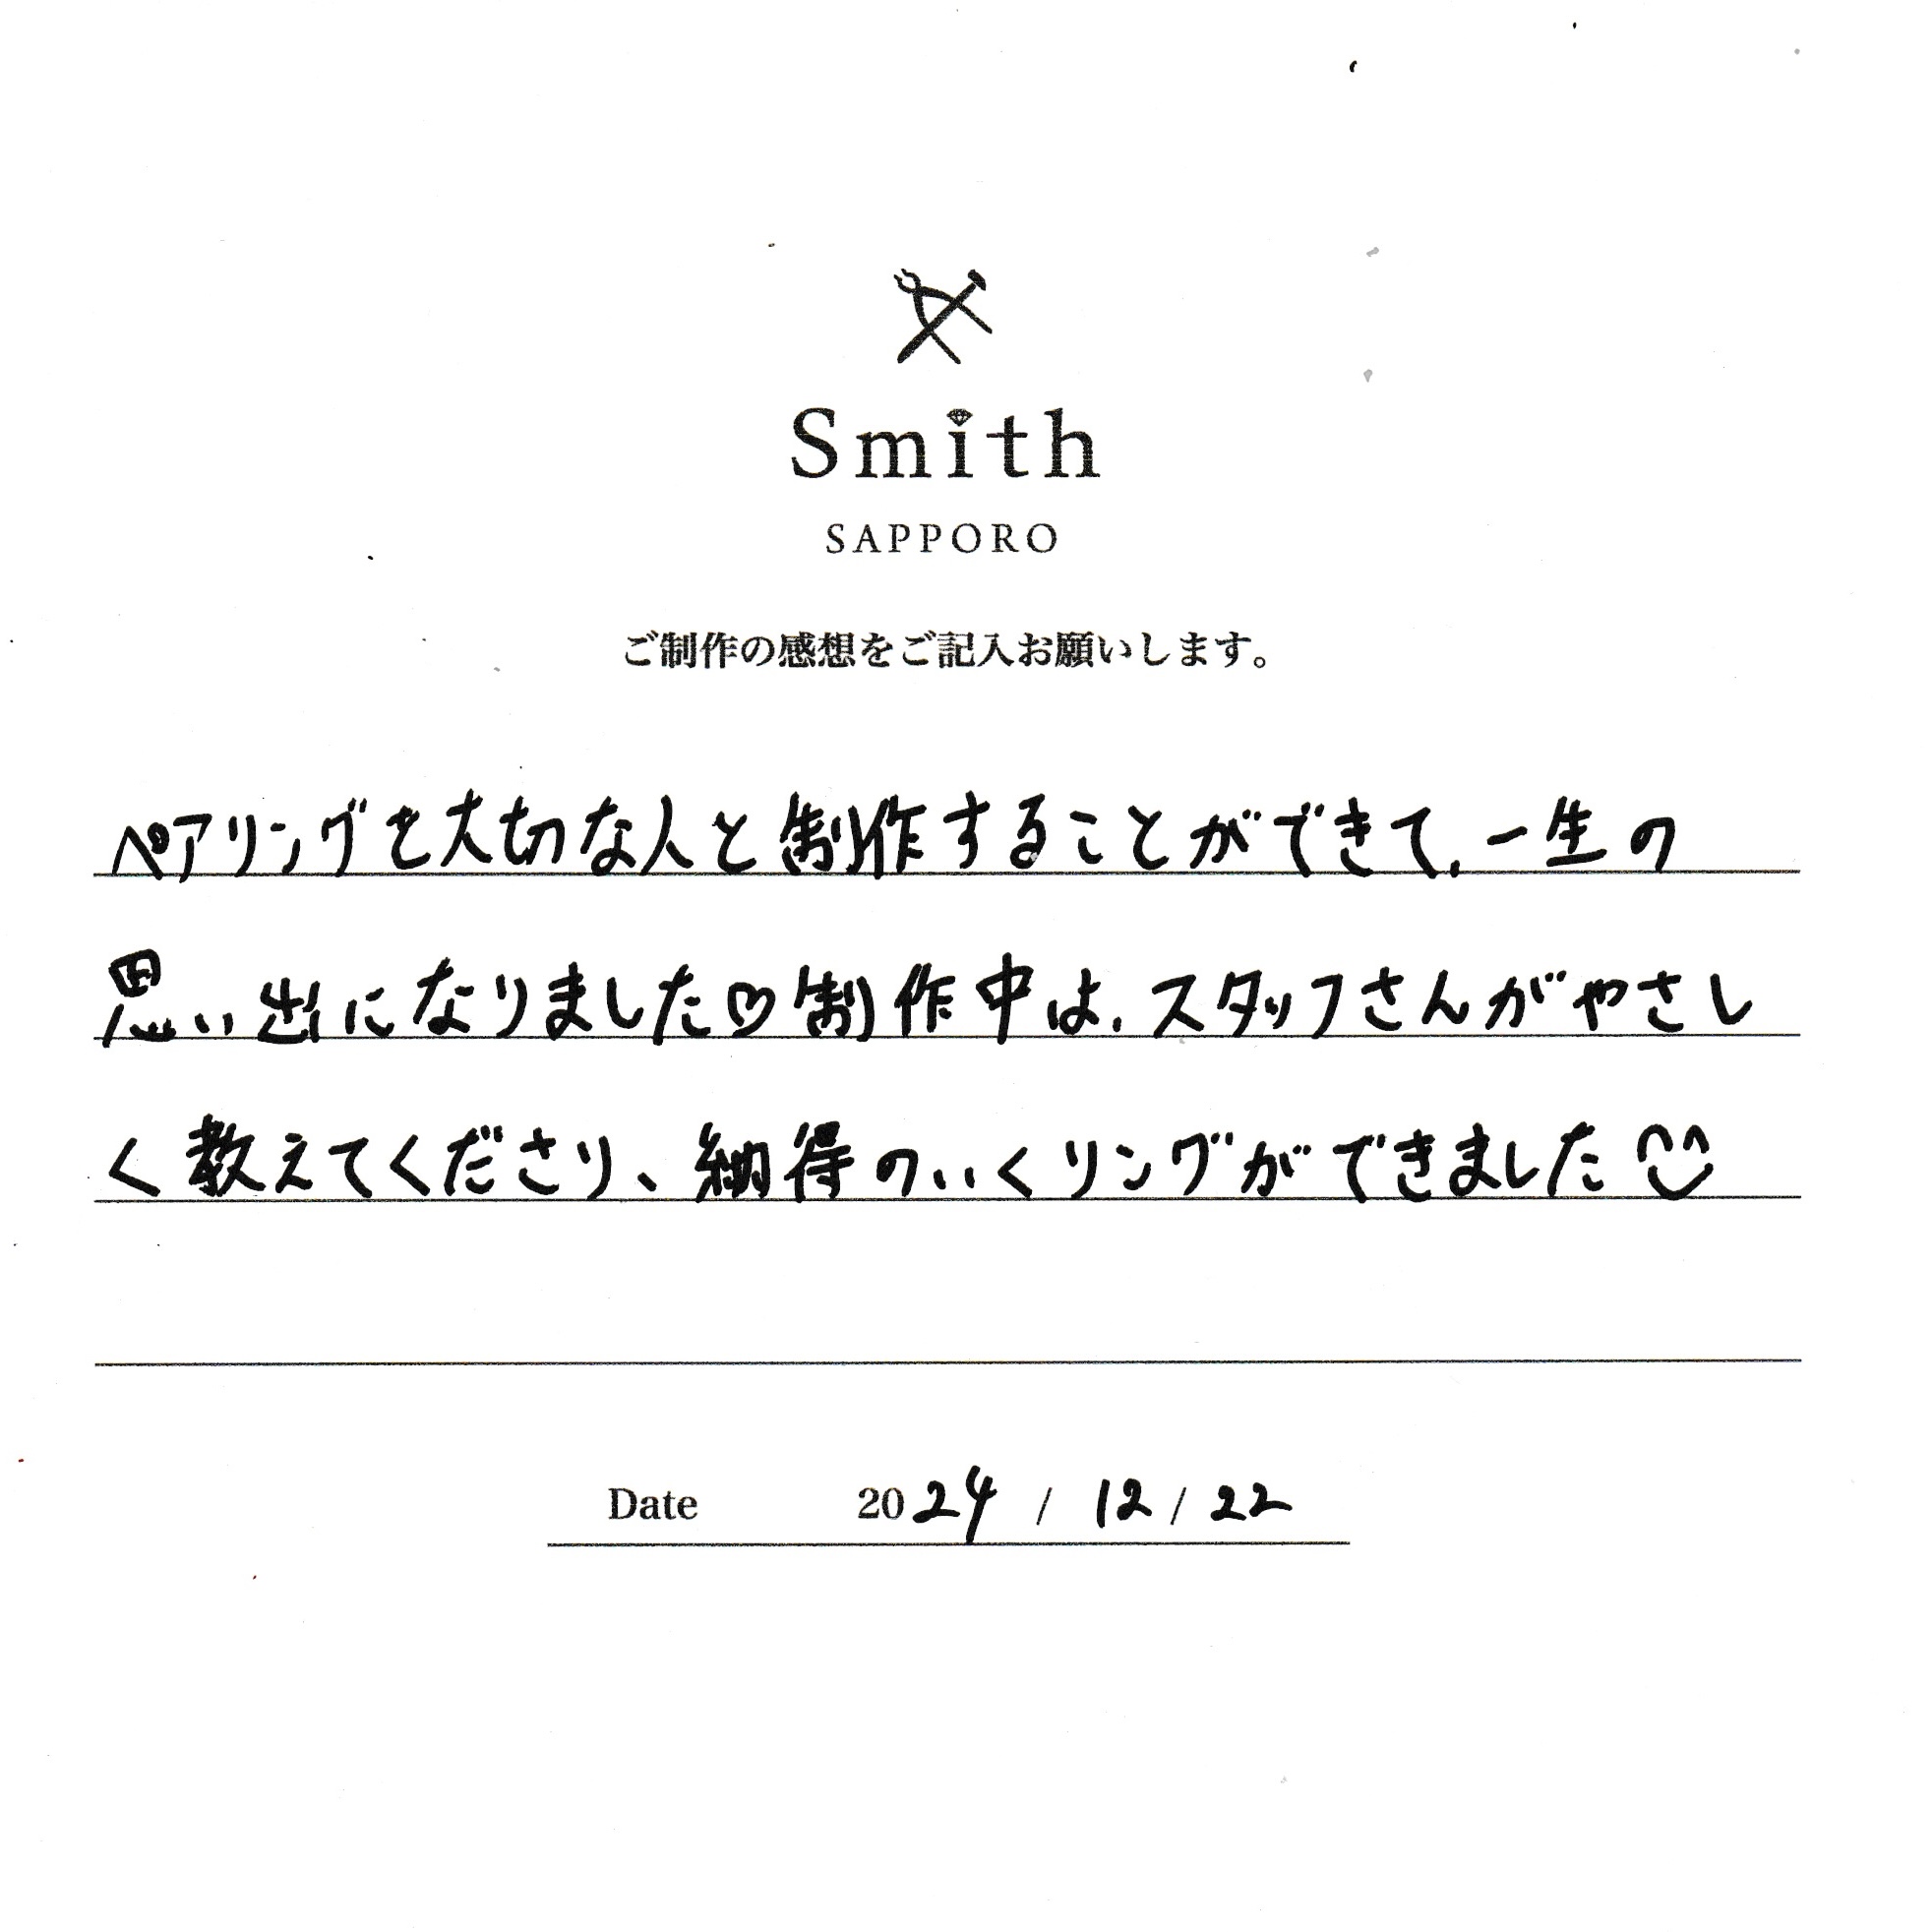 Smith
SAPPORO
ご制作の感想をご記入お願いします。
ペアリングを大切な人と制作することができて、一生の
思い出になりました♡制作中は、スタッフさんがやさし
く教えてくださり、納得のいくリングができました
Date 2024 / 12 / 22